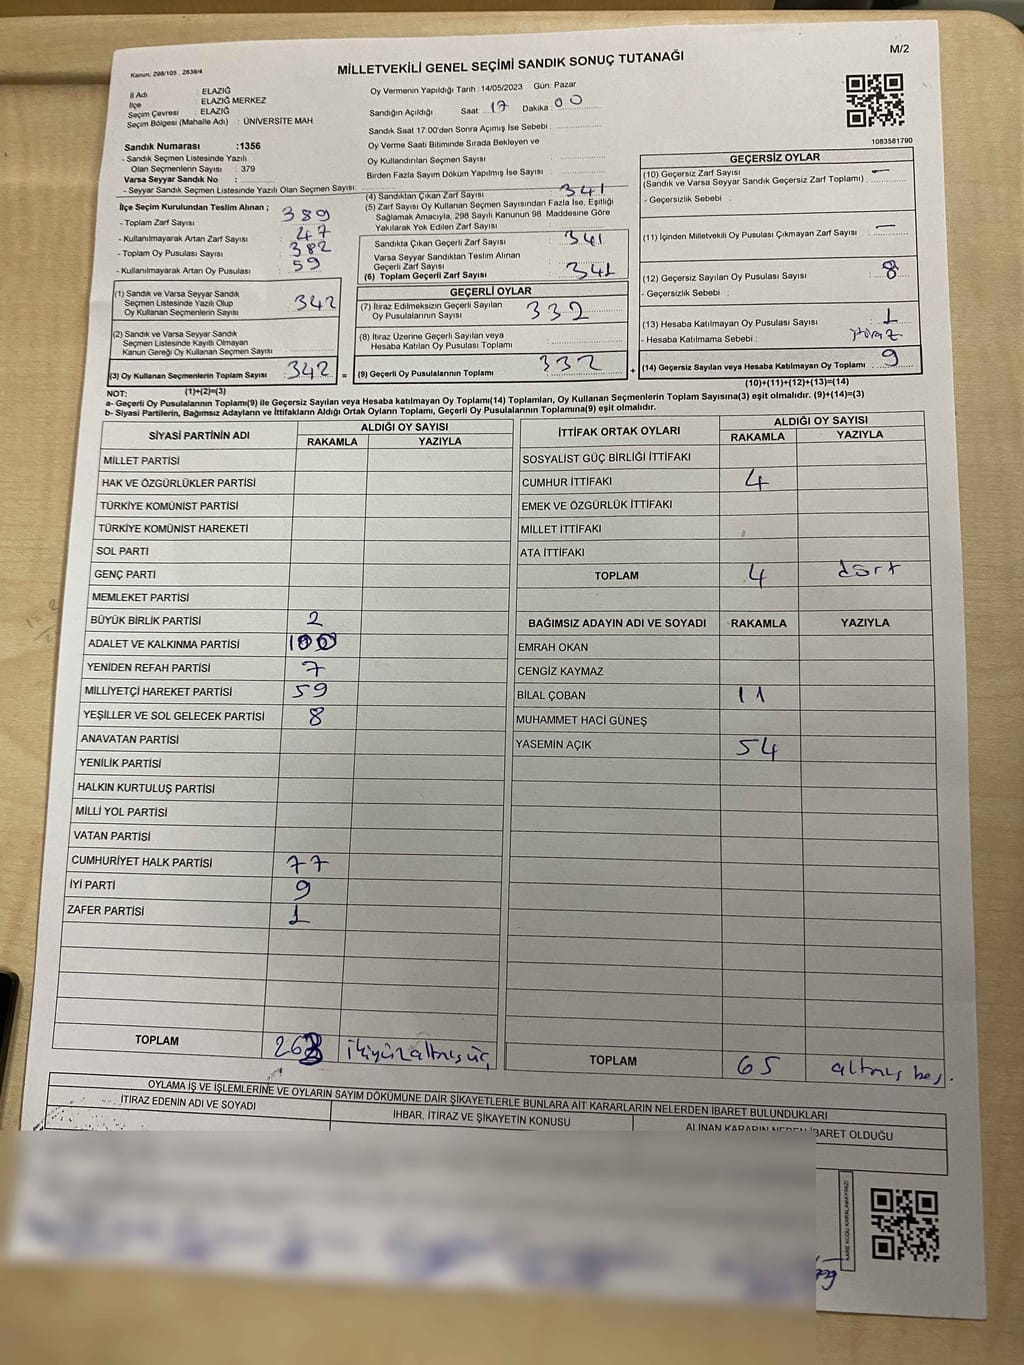 Kanun, 298/105 , 2839/4
MİLLETVEKİLİ GENEL SEÇİMİ SANDIK SONUÇ TUTANAĞI
M/2
İl Adı : ELAZIĞ
İlçe : ELAZIĞ MERKEZ
Seçim Çevresi : ELAZIĞ
Seçim Bölgesi (Mahalle Adı) : ÜNİVERSİTE MAH.
Sandık Numarası :1356
- Sandık Seçmen Listesinde Yazılı
Olan Seçmenlerin Sayısı : 379
Varsa Seyyar Sandık No :
- Seyyar Sandık Seçmen Listesinde Yazılı Olan Seçmen Sayısı:
Oy Vermenin Yapıldığı Tarih : 14/05/2023 Gün: Pazar
Sandığın Açıldığı Saat : 17 Dakika : 00
Sandık Saat 17:00'den Sonra Açımış İse Sebebi :
Oy Verme Saati Bitiminde Sırada Bekleyen ve
Oy Kullandırılan Seçmen Sayısı :
Birden Fazla Sayım Döküm Yapılmış İse Sayısı :
1083581790
İlçe Seçim Kurulundan Teslim Alınan ;
- Toplam Zarf Sayısı : 389
- Kullanılmayarak Artan Zarf Sayısı : 47
- Toplam Oy Pusulası Sayısı : 382
- Kullanılmayarak Artan Oy Pusulası : 59
(1) Sandık ve Varsa Seyyar Sandık
Seçmen Listesinde Yazılı Olup
Oy Kullanan Seçmenlerin Sayısı : 342
(2) Sandık ve Varsa Seyyar Sandık
Seçmen Listesinde Kayıtlı Olmayan
Kanun Gereği Oy Kullanan Seçmen Sayısı :
(3) Oy Kullanan Seçmenlerin Toplam Sayısı : 342 =
(1)+(2)=(3)
(4) Sandıktan Çıkan Zarf Sayısı : 341
(5) Zarf Sayısı Oy Kullanan Seçmen Sayısından Fazla İse, Eşitliği
Sağlamak Amacıyla, 298 Sayılı Kanunun 98. Maddesine Göre
Yakılarak Yok Edilen Zarf Sayısı :
Sandıkta Çıkan Geçerli Zarf Sayısı : 341
Varsa Seyyar Sandıktan Teslim Alınan
Geçerli Zarf Sayısı :
(6) Toplam Geçerli Zarf Sayısı : 341
GEÇERLİ OYLAR
(7) İtiraz Edilmeksizin Geçerli Sayılan
Oy Pusulalarının Sayısı : 332
(8) İtiraz Üzerine Geçerli Sayılan veya
Hesaba Katılan Oy Pusulası Toplamı :
(9) Geçerli Oy Pusulalarının Toplamı : 332 +
GEÇERSİZ OYLAR
(10) Geçersiz Zarf Sayısı : —
(Sandık ve Varsa Seyyar Sandık Geçersiz Zarf Toplamı)
- Geçersizlik Sebebi :
(11) İçinden Milletvekili Oy Pusulası Çıkmayan Zarf Sayısı : —
(12) Geçersiz Sayılan Oy Pusulası Sayısı : 8
- Geçersizlik Sebebi :
(13) Hesaba Katılmayan Oy Pusulası Sayısı : 1
- Hesaba Katılmama Sebebi : itiraz
(14) Geçersiz Sayılan veya Hesaba Katılmayan Oy Toplamı : 9
(10)+(11)+(12)+(13)=(14)
NOT:
a- Geçerli Oy Pusulalarının Toplamı(9) ile Geçersiz Sayılan veya Hesaba Katılmayan Oy Toplamı(14) Toplamları, Oy Kullanan Seçmenlerin Toplam Sayısına(3) eşit olmalıdır. (9)+(14)=(3)
b- Siyasi Partilerin, Bağımsız Adayların ve İttifakların Aldığı Ortak Oyların Toplamı, Geçerli Oy Pusulalarının Toplamına(9) eşit olmalıdır.
SİYASİ PARTİNİN ADI ALDIĞI OY SAYISI
RAKAMLA YAZIYLA
MİLLET PARTİSİ
HAK VE ÖZGÜRLÜKLER PARTİSİ
TÜRKİYE KOMÜNİST PARTİSİ
TÜRKİYE KOMÜNİST HAREKETİ
SOL PARTİ
GENÇ PARTİ
MEMLEKET PARTİSİ
BÜYÜK BİRLİK PARTİSİ 2
ADALET VE KALKINMA PARTİSİ 100
YENİDEN REFAH PARTİSİ 7
MİLLİYETÇİ HAREKET PARTİSİ 59
YEŞİLLER VE SOL GELECEK PARTİSİ 8
ANAVATAN PARTİSİ
YENİLİK PARTİSİ
HALKIN KURTULUŞ PARTİSİ
MİLLİ YOL PARTİSİ
VATAN PARTİSİ
CUMHURİYET HALK PARTİSİ 77
İYİ PARTİ 9
ZAFER PARTİSİ 1
TOPLAM 263 ikiyüzaltmışüç
İTTİFAK ORTAK OYLARI ALDIĞI OY SAYISI
RAKAMLA YAZIYLA
SOSYALİST GÜÇ BİRLİĞİ İTTİFAKI
CUMHUR İTTİFAKI 4
EMEK VE ÖZGÜRLÜK İTTİFAKI
MİLLET İTTİFAKI
ATA İTTİFAKI
TOPLAM 4 dört
BAĞIMSIZ ADAYIN ADI VE SOYADI RAKAMLA YAZIYLA
EMRAH OKAN
CENGİZ KAYMAZ
BİLAL ÇOBAN 11
MUHAMMET HACİ GÜNEŞ
YASEMİN AÇIK 54
TOPLAM 65 altmış beş.
OYLAMA İŞ VE İŞLEMLERİNE VE OYLARIN SAYIM DÖKÜMÜNE DAİR ŞİKAYETLERLE BUNLARA AİT KARARLARIN NELERDEN İBARET BULUNDUKLARI
İTİRAZ EDENİN ADI VE SOYADI
İHBAR, İTİRAZ VE ŞİKAYETİN KONUSU
ALINAN KARARIN NEDEN İBARET OLDUĞU
KARE KODU KARALAMAYINIZ!